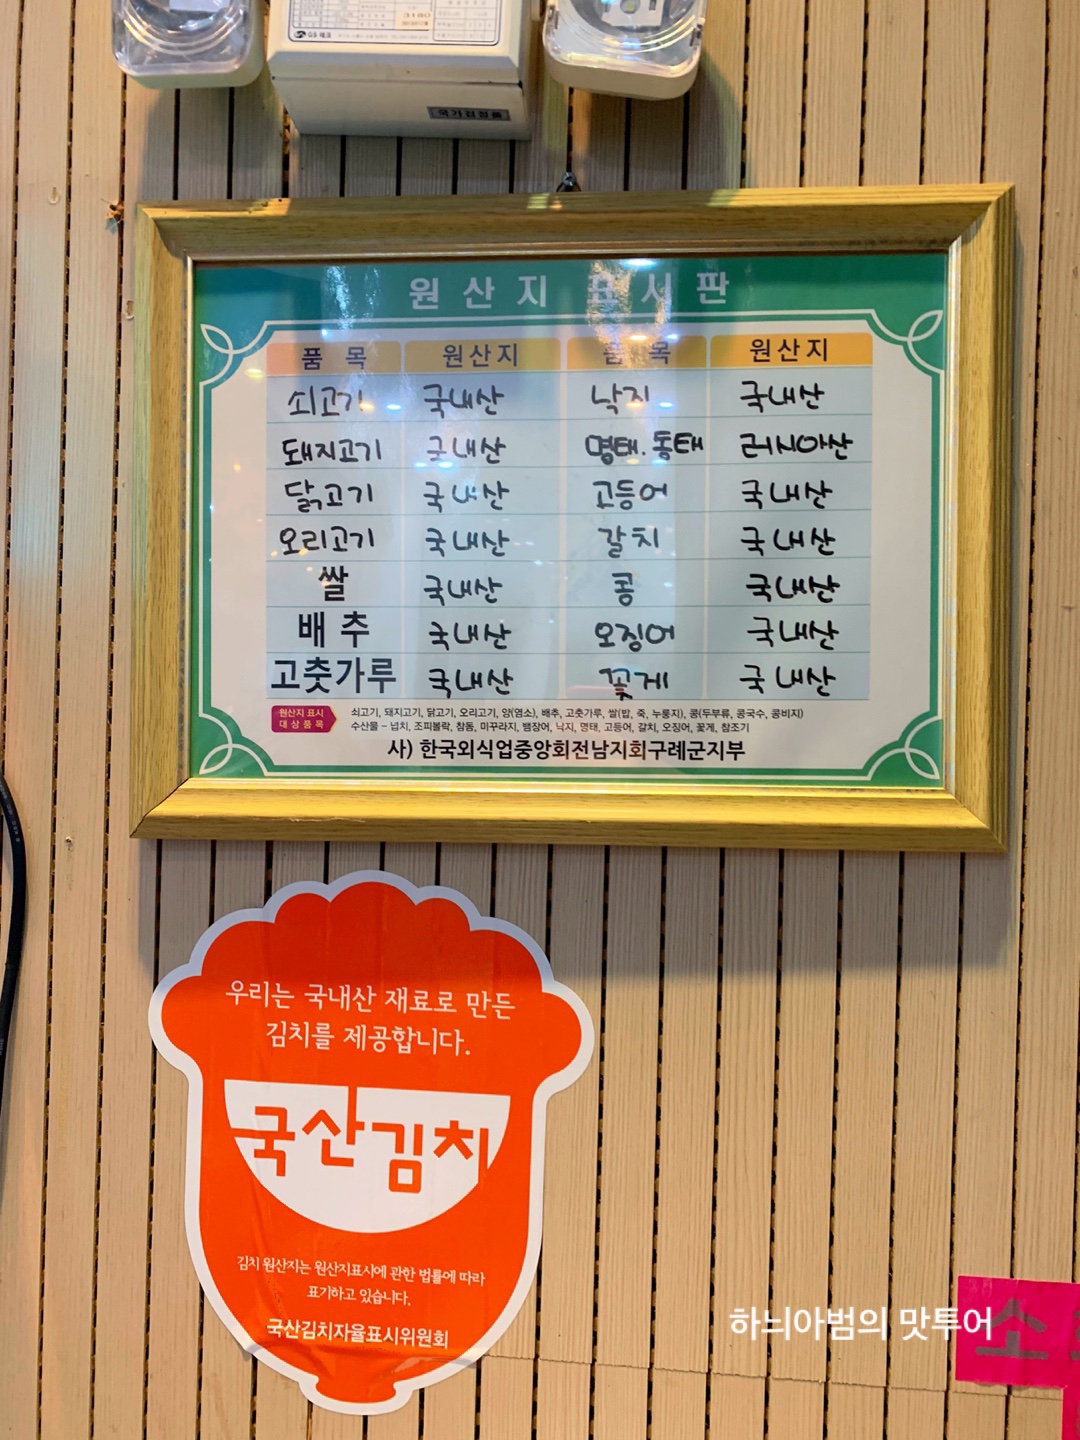 국가검정품
원산지 표시판
품 목 원산지 품 목 원산지
쇠고기 국내산 낙지 국내산
돼지고기 국내산 명태.동태 러시아산
닭고기 국내산 고등어 국내산
오리고기 국내산 갈치 국내산
쌀 국내산 콩 국내산
배 추 국내산 오징어 국내산
고춧가루 국내산 꽃게 국내산
원산지 표시
대 상 품 목
쇠고기, 돼지고기, 닭고기, 오리고기, 양(염소), 배추, 고춧가루, 쌀(밥, 죽, 누룽지), 콩(두부류, 콩국수, 콩비지)
수산물 – 넙치, 조피볼락, 참돔, 미꾸라지, 뱀장어, 낙지, 명태, 고등어, 갈치, 오징어, 꽃게, 참조기
사) 한국외식업중앙회전남지회구례군지부
우리는 국내산 재료로 만든
김치를 제공합니다.
국산김치
김치 원산지는 원산지표시에 관한 법률에 따라
표기하고 있습니다.
국산김치자율표시위원회
하늬아범의 맛투어
소